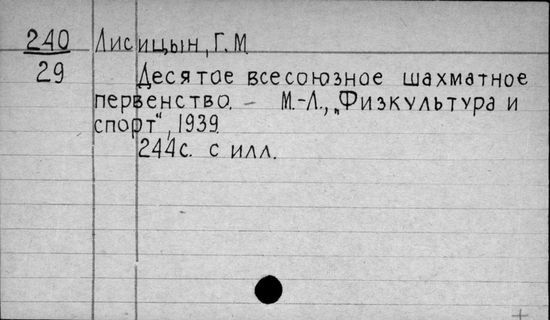 240 Лисицын, Г.М
29 Десятое всесоюзное шахматное
первенство. – М.-Л., „Физкультура и
спорт“, 1939.
244с. с илл.